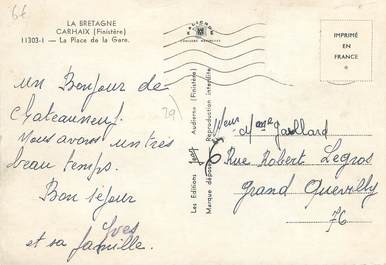 6f
LA BRETAGNE
CARHAIX (Finistère)
11303-I — La Place de la Gare.
un Bonjour de
chateauneuf.
29
Nous avons un très
beau temps.
Bon séjour
Yves
et sa famille.
Les Éditions Audierne (Finistère)
Marque déposée Reproduction interdite
IMPRIMÉ
EN
FRANCE
Mme Gaillard
6 Rue Robert Legros
Grand Quevilly
76